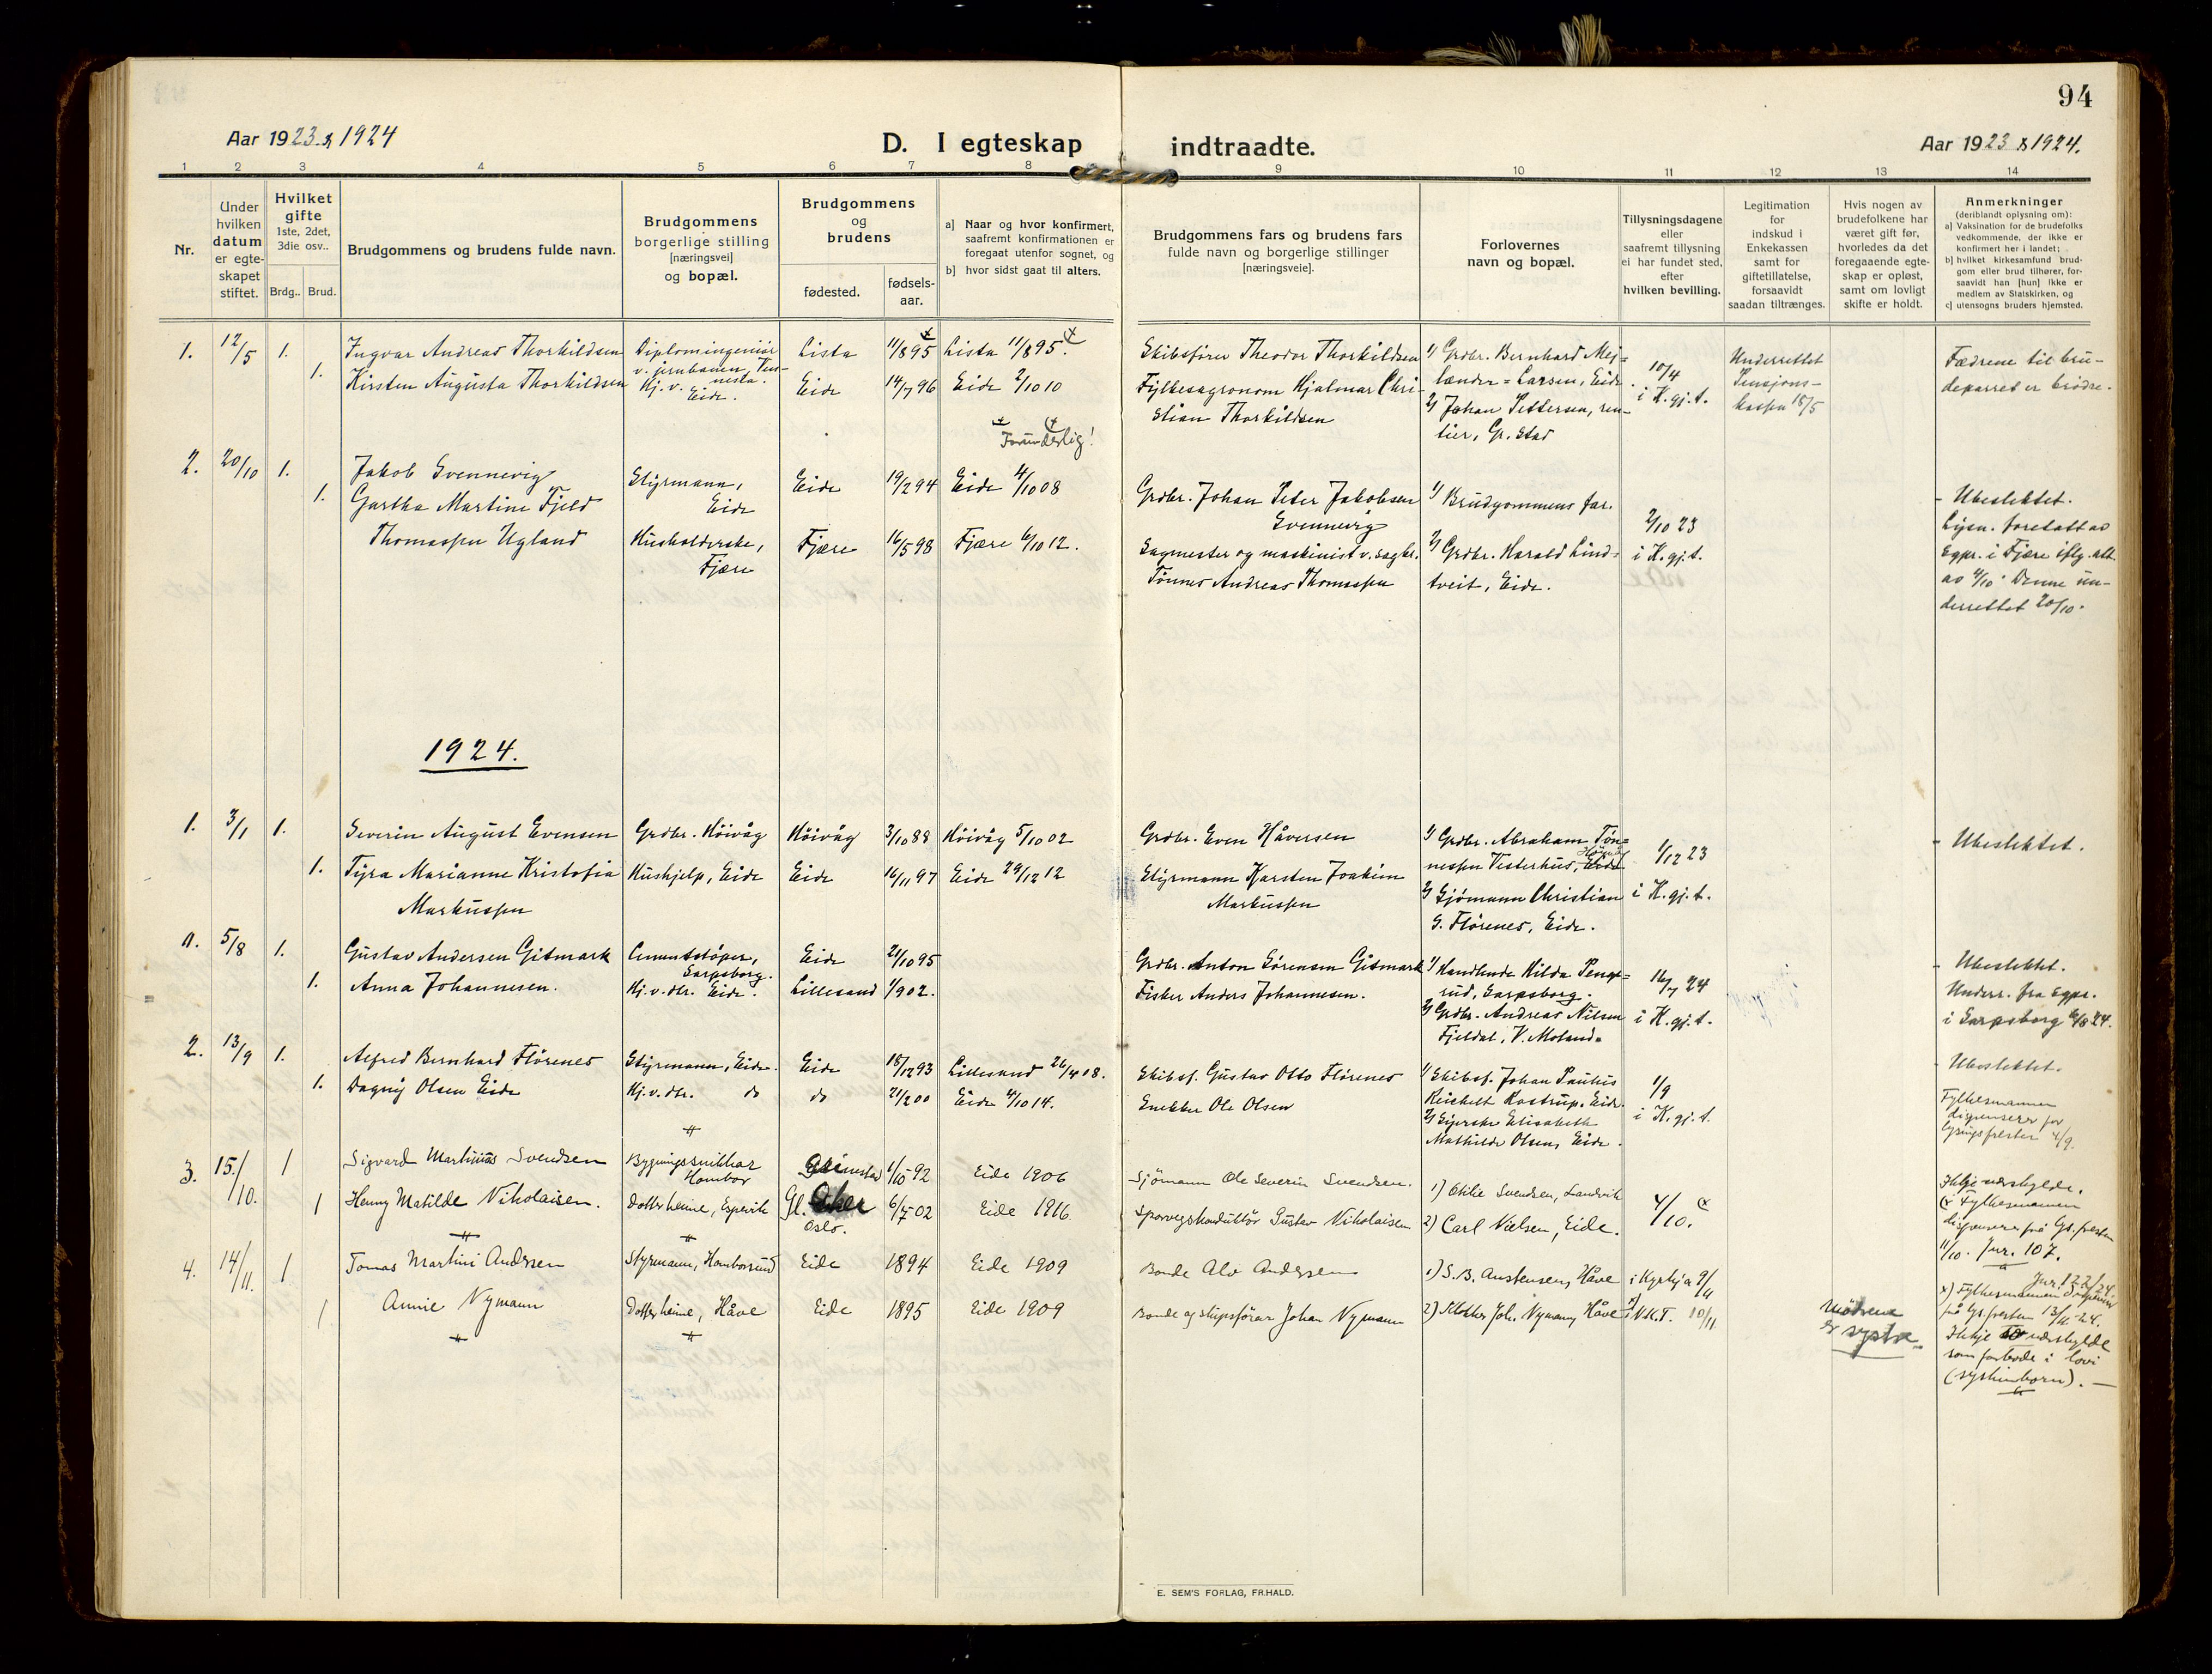 94
Aar 1923 & 1924
D. I egteskap indtraadte.
Aar 1923 & 1924.
1 2 3 4 5 6 7 8 9 10 11 12 13 14
Nr.
Under hvilken datum er egteskapet stiftet.
Hvilket gifte 1ste, 2det, 3die osv..
Brdg.. Brud.
Brudgommens og brudens fulde navn.
Brudgommens borgerlige stilling [næringsvei] og bopæl.
Brudgommens og brudens
fødested.
fødsels-aar.
a] Naar og hvor konfirmert, saafremt konfirmationen er foregaat utenfor sognet, og
b] hvor sidst gaat til alters.
Brudgommens fars og brudens fars fulde navn og borgerlige stillinger [næringsveie].
Forlovernes navn og bopæl.
Tillysningsdagene eller saafremt tillysning ei har fundet sted, efter hvilken bevilling.
Legitimation for indskud i Enkekassen samt for giftetillatelse, forsaavidt saadan tiltrænges.
Hvis nogen av brudefolkene har været gift før, hvorledes da det foregaaende egteskap er opløst, samt om lovligt skifte er holdt.
Anmerkninger
(deriblandt oplysning om):
a] Vaksination for de brudefolks vedkommende, der ikke er konfirmert her i landet;
b] hvilket kirkesamfund brudgom eller brud tilhører, forsaavidt han [hun] ikke er medlem av Statskirken, og
c] utensogns bruders hjemsted.
1. 12/5 1. Ingvar Andreas Thorkildsen Diplomingeniør v. jernbanen, Lista 11/8 95 Lista 11/8 95. Skibsfører Theodor Thorkildsen 1/ Grdbr. Bernhard Mejlænder=Larsen, Eide. 10/4 i K.gj.t. Underrettet Pensjonskassen 18/5 Fædrene til brudeparret er brødre.
1. Kirsten Augusta Thorkildsen Hj. v. Eide. Eide 14/7 96 Eide 2/10 10 Fylkesagronom Hjalmar Christian Thorkildsen 2/ Johan Pettersen, rentier, Gr.stad
Forunderlig!
2. 20/10 1. Jakob Svennevig Styrmann, Eide Eide 19/2 94 Eide 4/10 08 Grdbr. Johan Peter Jakobsen Svennevig 1/ Brudgommens far. 2/10 23 i K.gj.t. - Ubeslektet.
1. Gartha Martine Fjeld Thomassen Ugland Husholderske, Fjære Fjære 16/5 98 Fjære 6/10 12. Sagmester og maskinist v. sagbr. Tønnes Andreas Thomassen 2/ Grdbr. Harald Lindtveit, Eide. Lysn. foretatt av sgpr. i Fjære iflg. att. av 4/10. Denne underrettet 20/10.
1924.
1. 3/1 1. Severin August Evensen Grdbr. Høivåg Høivåg 3/10 88 Høivåg 5/10 02 Grdbr. Even Håversen 1/ Grdbr. Abraham Tønnessen Vesterhus, Eide 1/12 23 i K.gj.t. - Ubeslektet.
1. Tyra Marianne Kristofia Markussen Hushjelp, Eide Eide 16/11 97 Eide 29/12 12 Styrmann Karsten Joakim Markussen 2/ Sjømann Christian G. Flørenes, Eide.
5/8 1. Gustav Andersen Gitmark Cementstøper, Sarpsborg. Eide 21/10 95 Grdbr. Anton Sørensen Gitmark 1/ Handlende Hilda Sarpsborg. 16/7 24 i K.gj.t. - Ubeslektet.
1. Anna Johannesen. Hj.v.dtr. Eide. Lillesand 1/9 02. Fisker Anders Johannesen. 2/ Grdbr. Andreas Nilsen Fjeldal, V. Moland. Underr. fra sgpr. i Sarpsborg 6/8 24.
2. 13/9 1. Alfred Bernhard Flørenes Styrmann, Eide. Eide 18/12 93 Lillesand 26/4 08. Skibsf. Gustav Otto Flørenes 1/ Skibsf. Johan Paulus Reichelt Rostrup, Eide. 1/9 i K.gj.t. - Ubeslektet.
1. Dagny Olsen Eide Hj.v.dtr. do do 21/2 00 Eide 4/10 14. Snekker Ole Olsen 2/ Syerske Elisabeth Mathilde Olsen, Eide. Fylkesmannen dispenserer for lysingsfristen 4/9.
3. 15./10. 1 Sigvard Martinius Svendsen Bygningssnikkar Hombor Grimestad 1/10 92 Eide 1906 Sjömann Ole Severin Svendsen. 1) Othilie Svendsen, Landvik 4/10. Ikkje udskylde.
1 Henny Matilde Nikolaisen. Dotter heime, Espevik Gl. Aker Oslo. 6/5 02 Eide 1916 Sporvegskonduktör Gustav Nikolaisen 2) Carl Nielsen, Eide. Fylkesmannen dispenserer frå lys.fresten 11/10. Jur. 107.
4. 14/11. 1 Tomas Martini Andersen Styrmann, Homborsund Eide 1894 Eide 1909 Bonde Alv Andersen 1) S. B. Austensen, Håve i Kyrkja 9/11 Jur. 122/24
1 Annie Nymann Dotter heime, Håve Eide 1895 Eide 1909 Bonde og skipsförar Johan Nymann 2) Joh. Nymann, Håve N.K.T. 10/11 Mödrene er systre. x) Fylkesmannen dispenserer frå lys.fresten 13/11-24. Ikkje udskylde som forbode i lovi (syskinborn). —
E. SEM'S FORLAG, FR.HALD.